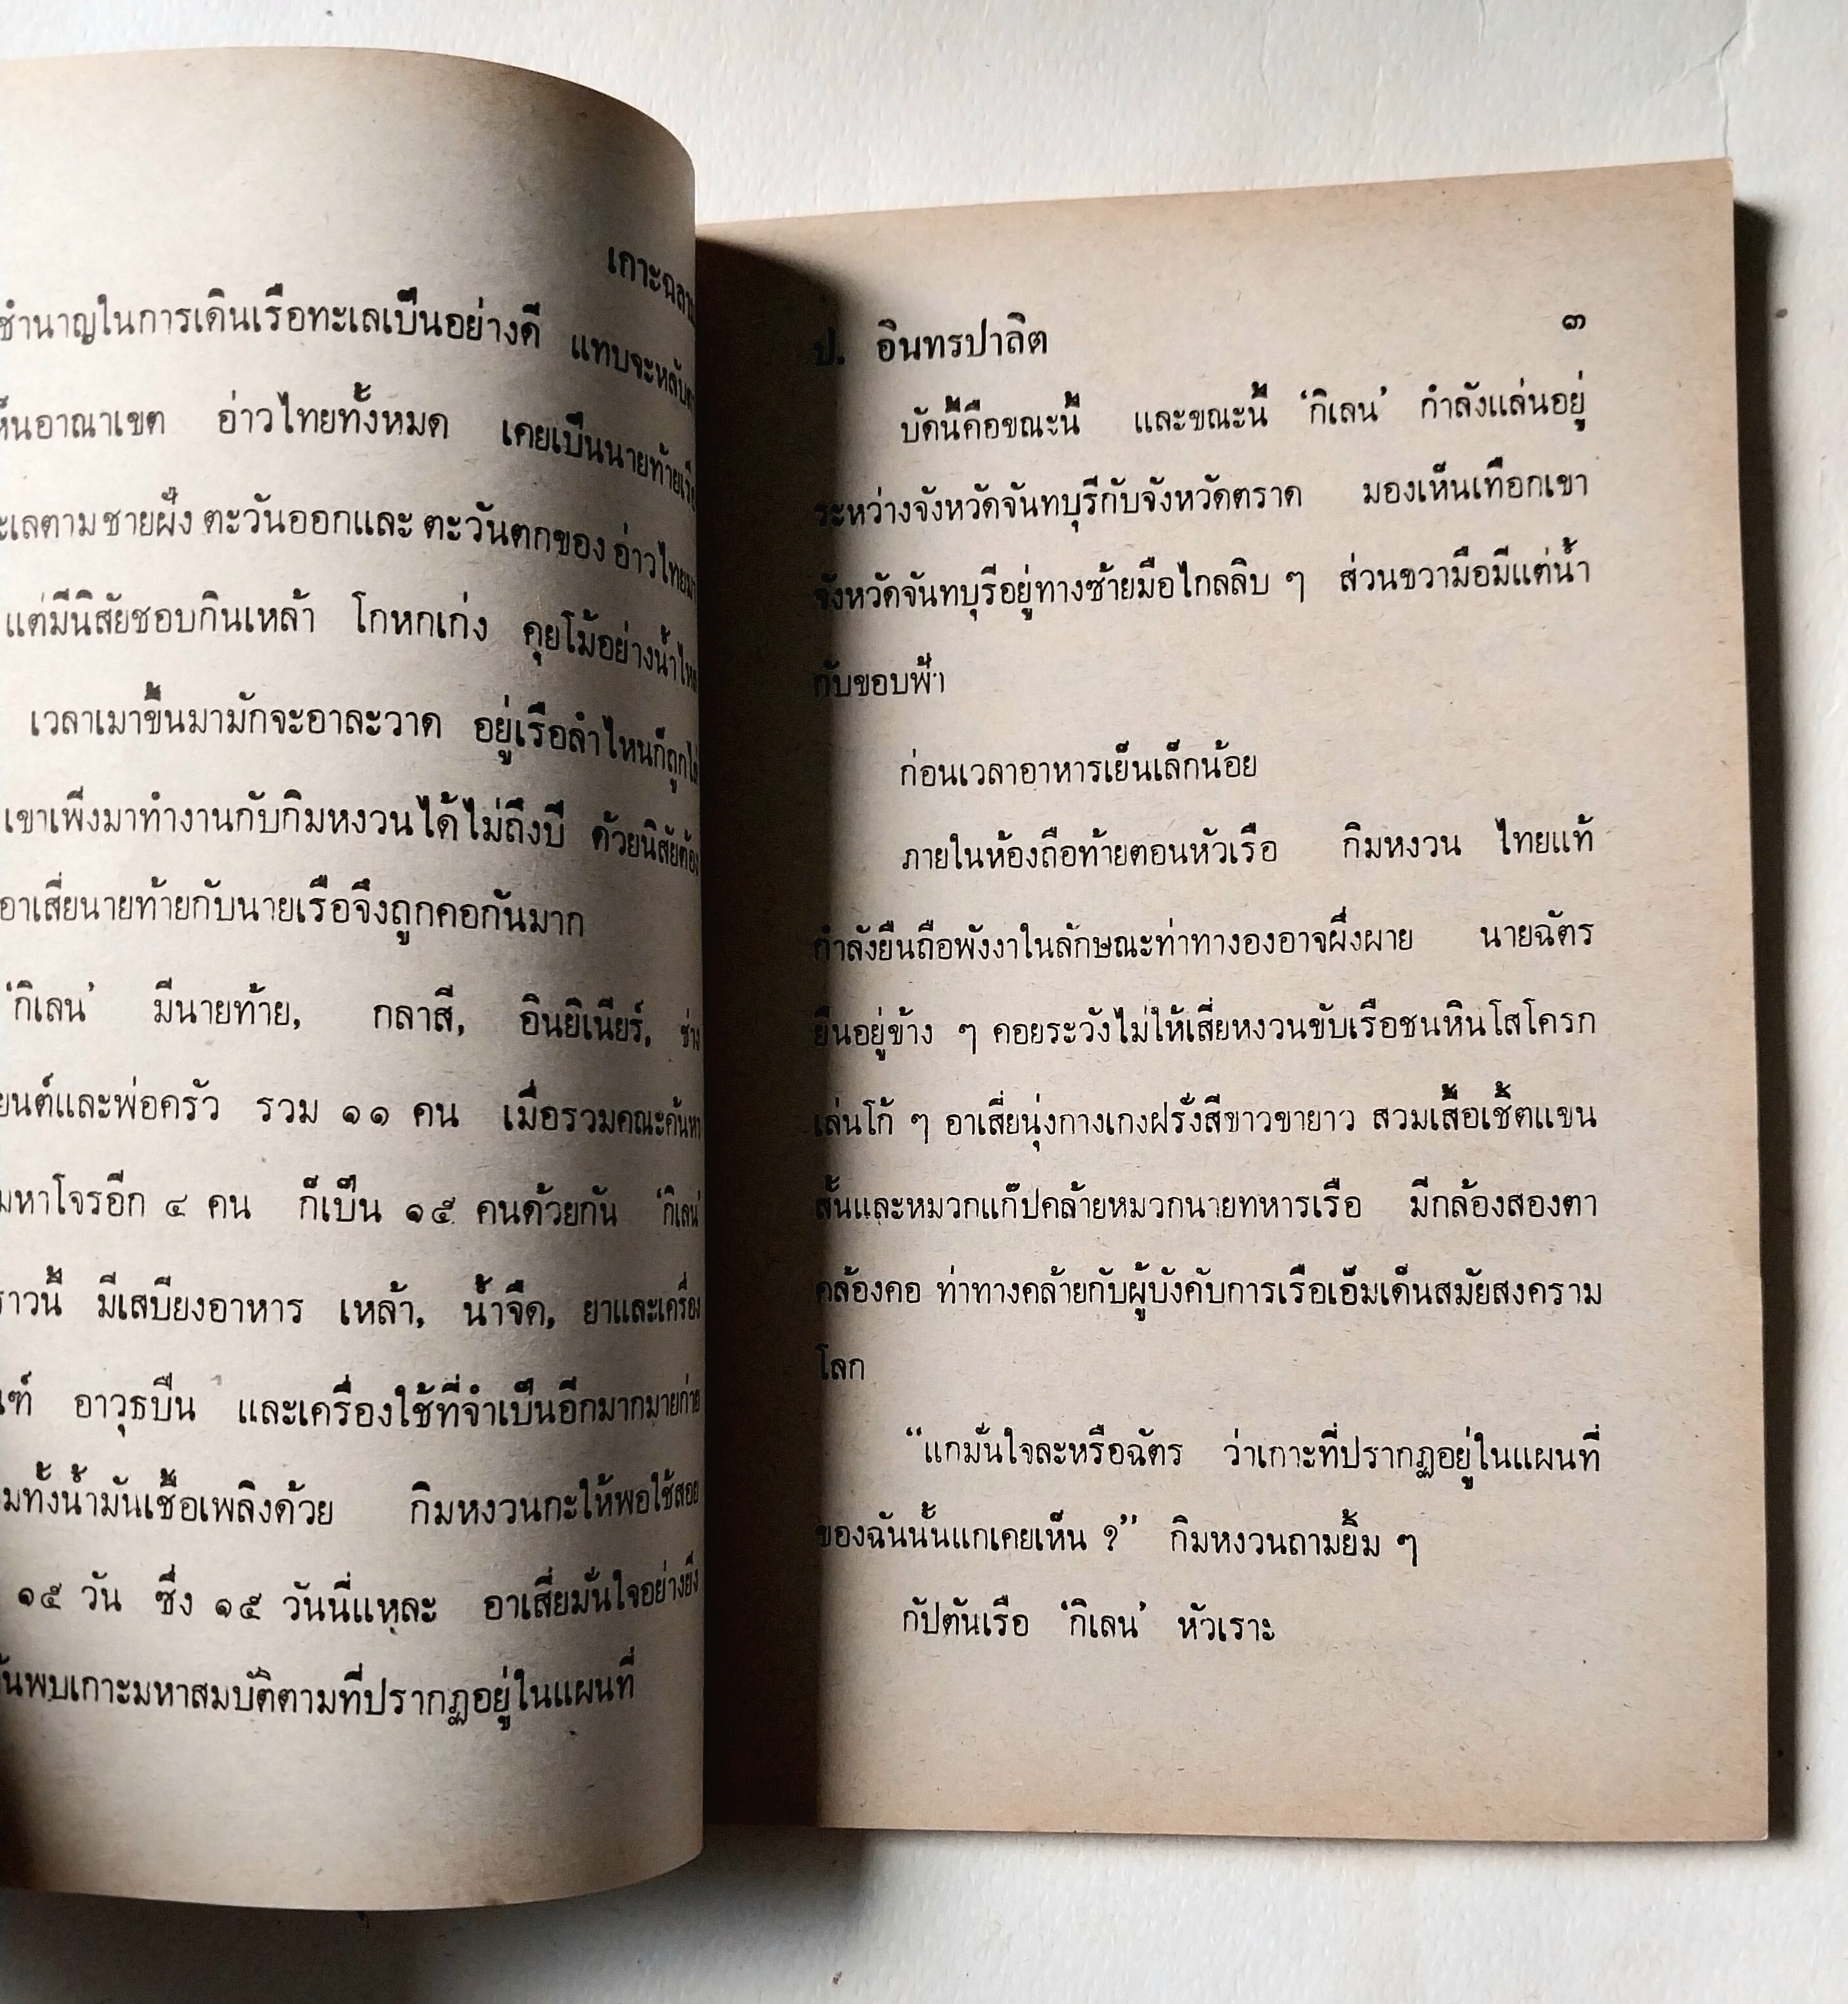 ชำนาญในการเดินเรือทะเลเป็นอย่างดี แทบจะหลับตา
เห็นอาณาเขต อ่าวไทยทั้งหมด เคยเป็นนายท้ายเรือ
ทะเลตามชายฝั่ง ตะวันออกและ ตะวันตกของ อ่าวไทยมา
แต่มีนิสัยชอบกินเหล้า โกหกเก่ง คุยโม้อย่างน้ำไหล
เวลาเมาขึ้นมามักจะอาละวาด อยู่เรือลำไหนก็ถูกไล่
เขาเพิ่งมาทำงานกับกิมหงวนได้ไม่ถึงปี ด้วยนิสัยต้อง
อาเสี่ยนายท้ายกับนายเรือจึงถูกคอกันมาก
'กิเลน' มีนายท้าย, กลาสี, อินยิเนียร์, ช่าง
ยนต์และพ่อครัว รวม ๑๑ คน เมื่อรวมคณะค้นหา
มหาโจรอีก ๔ คน ก็เป็น ๑๕ คนด้วยกัน 'กิเลน'
คราวนี้ มีเสบียงอาหาร เหล้า, น้ำจืด, ยาและเครื่อง
อาวุธปืน และเครื่องใช้ที่จำเป็นอีกมากมายก่าย
รวมทั้งน้ำมันเชื้อเพลิงด้วย กิมหงวนกะให้พอใช้สอย
๑๕ วัน ซึ่ง ๑๕ วันนี่แหละ อาเสี่ยมั่นใจอย่างยิ่ง
ค้นพบเกาะมหาสมบัติตามที่ปรากฏอยู่ในแผนที่
ป. อินทรปาลิต ๓
บัดนี้คือขณะนี้ และขณะนี้ 'กิเลน' กำลังแล่นอยู่
ระหว่างจังหวัดจันทบุรีกับจังหวัดตราด มองเห็นเทือกเขา
จังหวัดจันทบุรีอยู่ทางซ้ายมือไกลลิบ ๆ ส่วนขวามือมีแต่น้ำ
กับขอบฟ้า
ก่อนเวลาอาหารเย็นเล็กน้อย
ภายในห้องถือท้ายตอนหัวเรือ กิมหงวน ไทยแท้
กำลังยืนถือพังงาในลักษณะท่าทางองอาจผึ่งผาย นายฉัตร
ยืนอยู่ข้าง ๆ คอยระวังไม่ให้เสี่ยหงวนขับเรือชนหินโสโครก
เล่นโก้ ๆ อาเสี่ยนุ่งกางเกงฝรั่งสีขาวขายาว สวมเสื้อเชิ้ตแขน
สั้นและหมวกแก๊ปคล้ายหมวกนายทหารเรือ มีกล้องสองตา
คล้องคอ ท่าทางคล้ายกับผู้บังคับการเรือเอ็มเด็นสมัยสงคราม
โลก
"แกมั่นใจละหรือฉัตร ว่าเกาะที่ปรากฏอยู่ในแผนที่
ของฉันนั้นแกเคยเห็น ?" กิมหงวนถามยิ้ม ๆ
กัปตันเรือ 'กิเลน' หัวเราะ